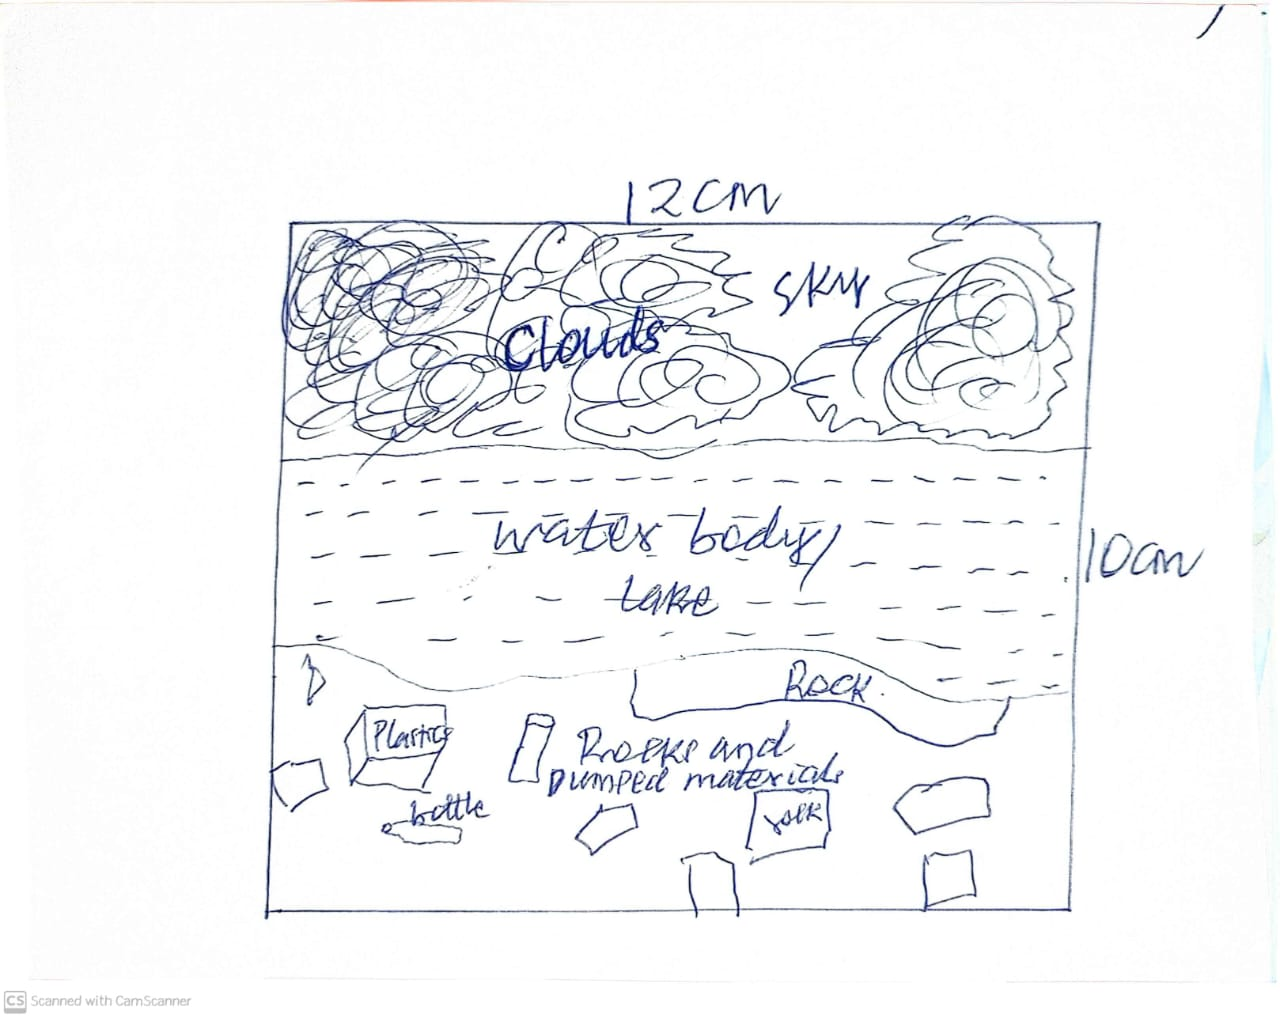 12cm
sky
Clouds
water body/
Lake
10cm
Rock
Plastics
Rocks and
Dumped materials
bottle
CS Scanned with CamScanner